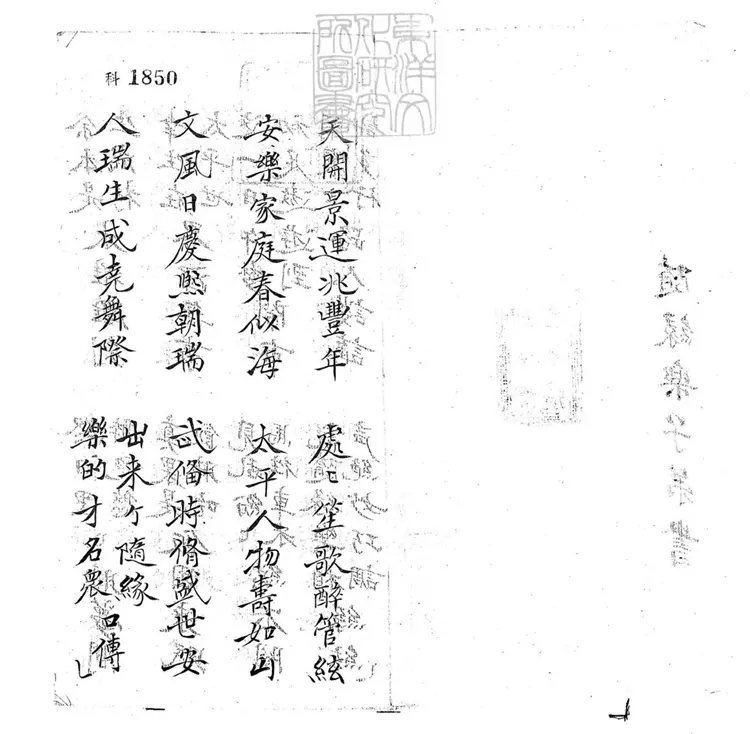 東洋文
化研究
所圖書
科 1850
天開景運兆豐年 處〻笙歌醉管絃
安樂家庭春似海 太平人物壽如山
文風日慶熙朝瑞 武備時脩盛世安
人瑞生成堯舞際 出来个隨緣
樂的才名眾口傳
隨緣樂子弟書